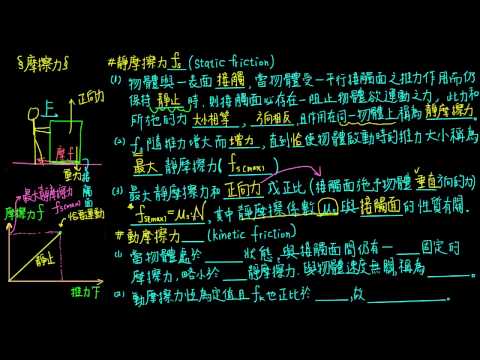 §摩擦力§
正向力
F
摩f
重力
接觸面
最大靜摩擦力
fs(max)
摩擦力 f
恰要運動
靜止
推力 F
#靜摩擦力 fs (static friction)
(1) 物體與一表面 接觸, 當物體受一平行接觸面之推力作用而仍
保持 靜止 時, 則接觸面必存在一阻止物體欲運動之力, 此力和
所施的力 大小相等, 方向相反, 且作用在同一物體上稱為 靜摩擦力.
(2) fs 隨推力增大而 增力, 直到恰使物體啟動時的推力大小稱為
最大 靜摩擦力 ( fs(max) )
(3) 最大靜摩擦力和 正向力 成正比 (接觸面施予物體 垂直 方向的力)
fs(max)=μs·N, 其中 靜摩擦係數(μs) 與 接觸面 的性質有關.
#動摩擦力____ (kinetic friction)
(1) 當物體處於____ 狀態, 與接觸面間仍有一____ 固定的
摩擦力, 略小於____ 靜摩擦力, 與物體速度無關, 稱為____.
(2) 動摩擦力恆為定值且 fk 也正比於____, 故____.